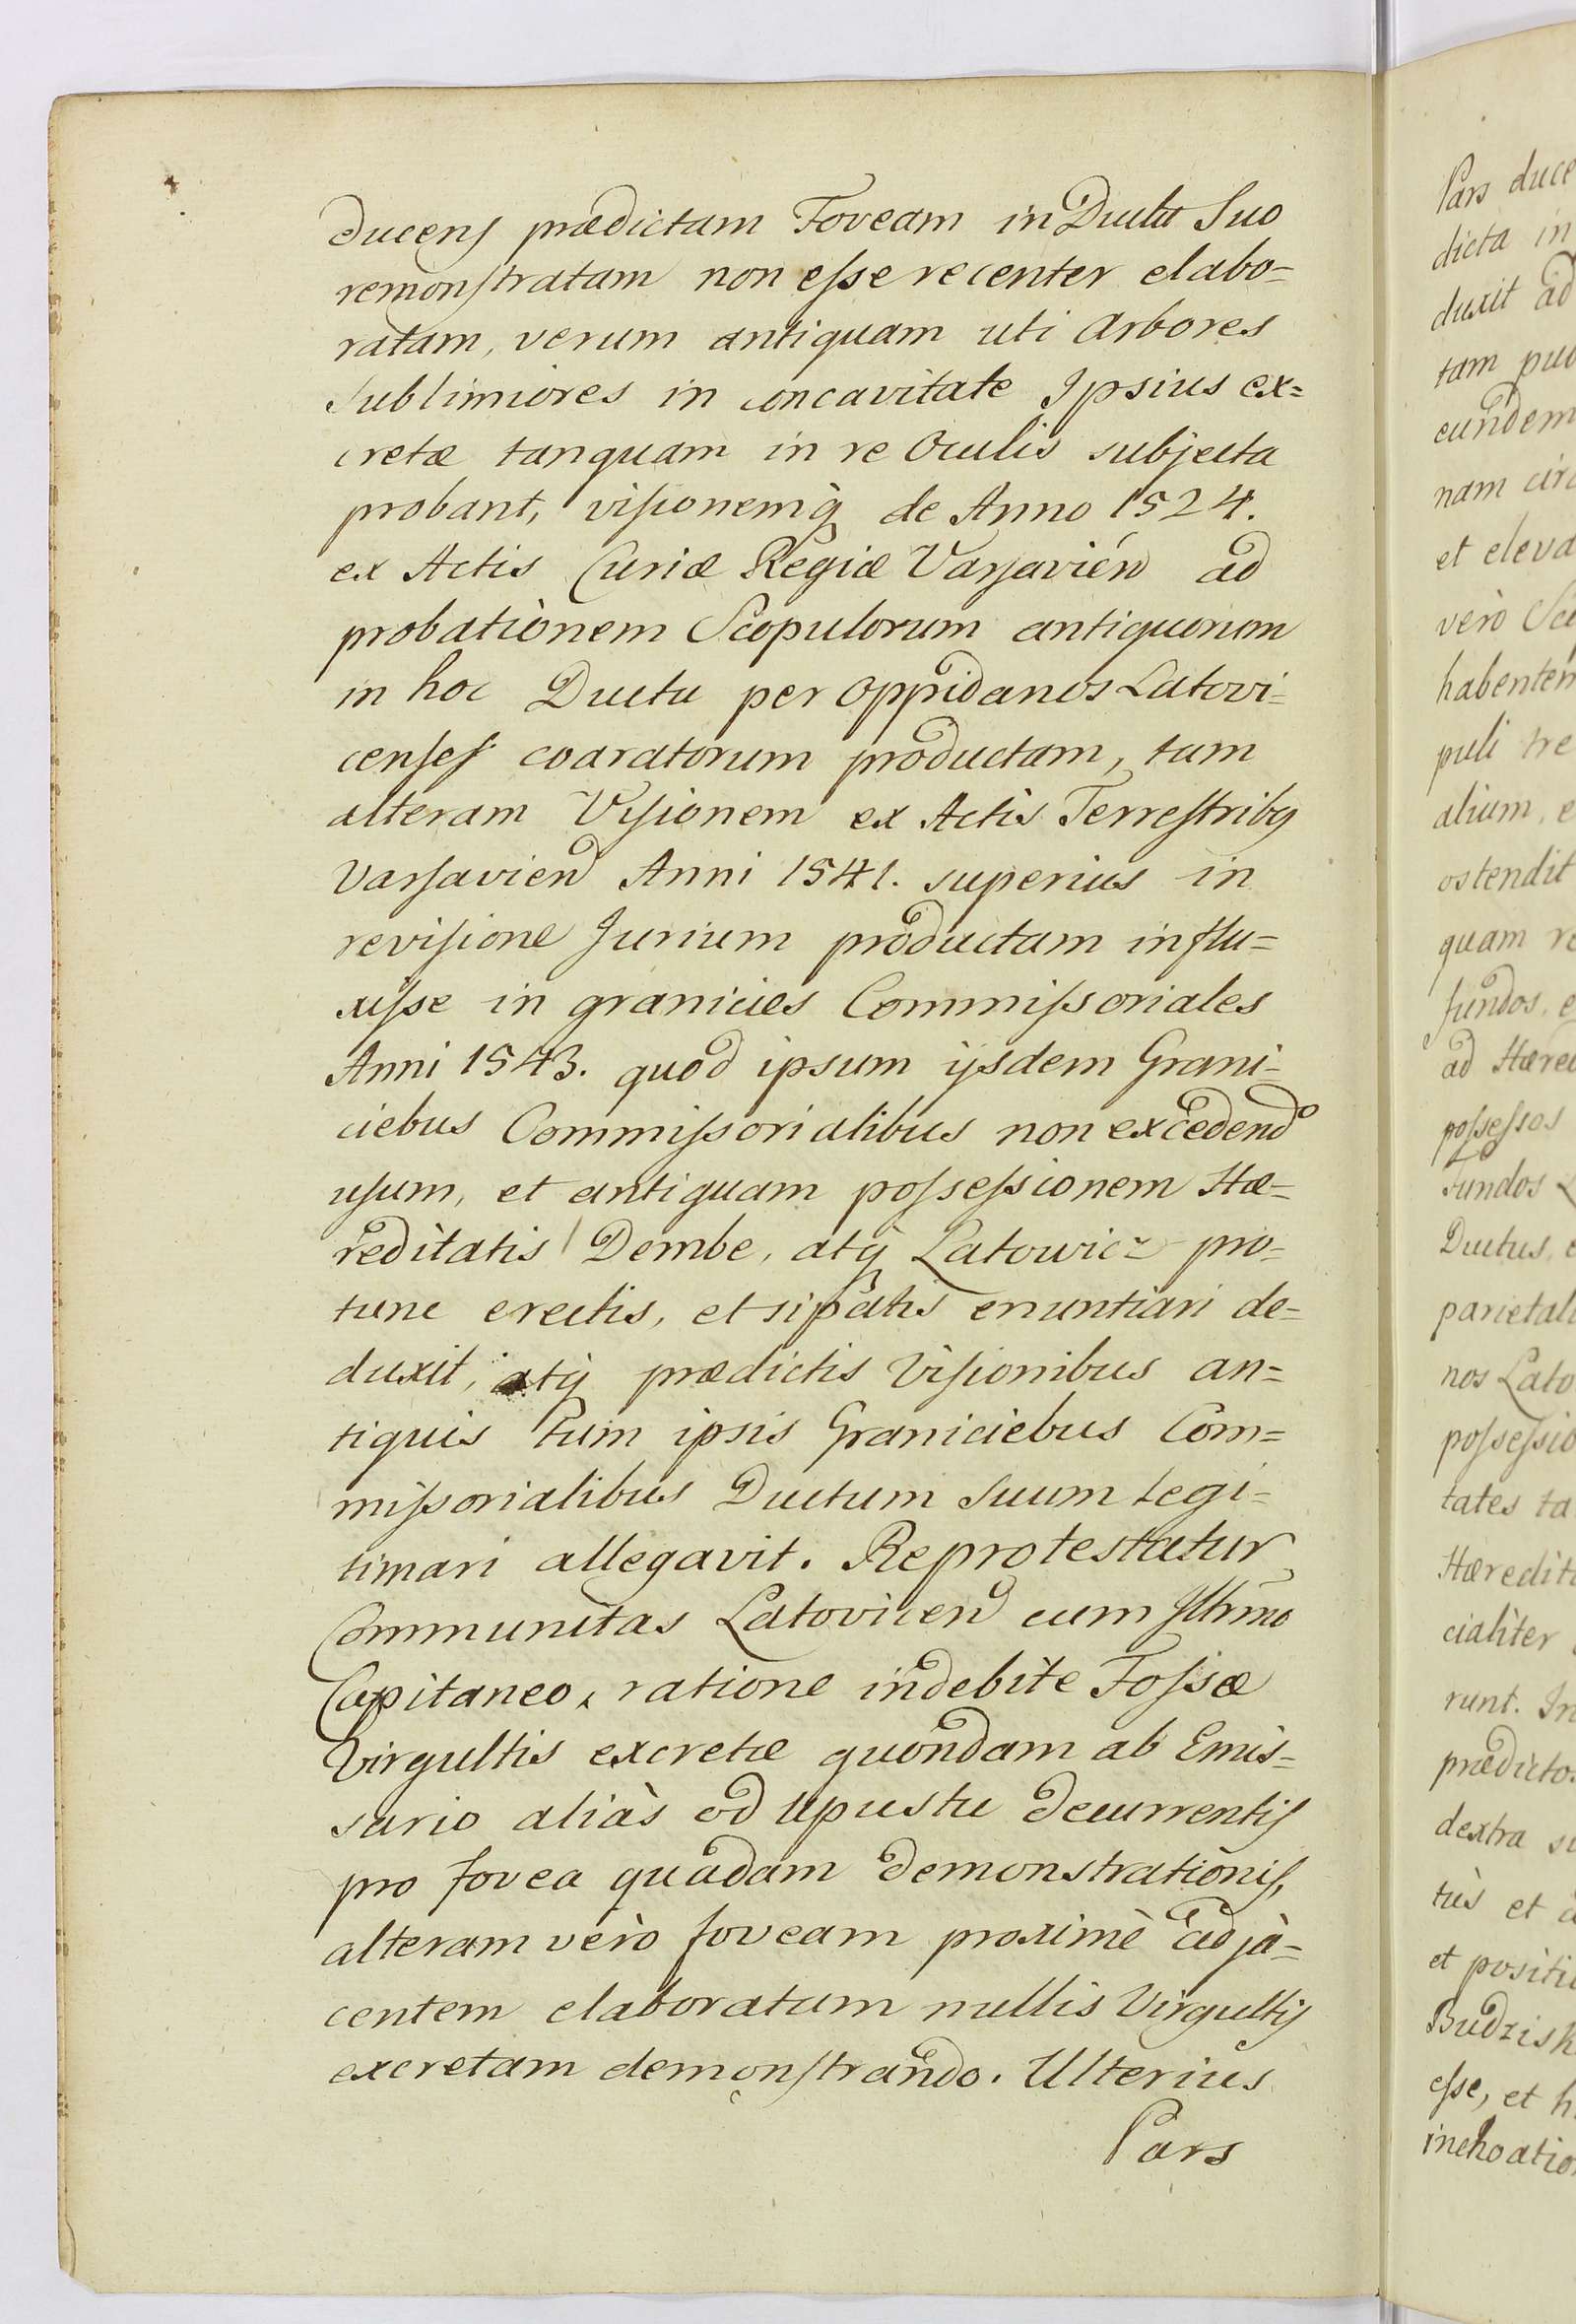 ducens prædictam Foveam in Ductu Suo
remonstratam non esse recenter elabo=
ratam, verum antiquam uti Arbores
Sublimiores in concavitate Ipsius ex=
cretæ tanquam in re Oculis subjecta
probant, visionemq́ de Anno 1524.
ex Actis Curiæ Regiæ Varsavién ad
probationem Scopulorum antiquorum
in hoc Ductu per Oppidanos Latovi=
censes coaratorum productam, tum
alteram Visionem ex Actis Terrestribq
Varsavien Anni 1541. superius in
revisione Jurium productam influ=
xisse in granicies Commissoriales
Anni 1543. quod ipsum ijsdem Grani=
ciebus Commissorialibus non excedend
usum, et antiquam possessionem Hæ=
reditatis Dembe, atq́ Latowicz pro=
tunc erectis, et sipatis enuntiari de=
duxit, atq́ prædictis Visionibus an=
tiquis tum ipsis Graniciebus Com=
missorialibus Ductum Suum legi=
timari allegavit. Reprotestatur
Communitas Latovicen cum Illrmo
Capitaneo, ratione indebite Fossæ
Virgultis excretæ quondam ab Emis=
sario aliàs od Upustu decurrentis
pro fovea quadam demonstrationis,
alteram verò foveam proximè adja=
centem elaboratam nullis Virgultis
excretam demonstrando. Ulterius
Pars
Pars duce
dicta in
duxit ad
tam
eundem
nam circ
et eleva
verò Sco
habentem
puli tre
alium, e
ostendit
quam re
fundos, e
ad Hæred
possessos
Fundos L
Ductus, e
parietal
nos Lato
possessio
tates ta
Hæredit
cialiter
runt. In
prædicto
dextra si
tùs et a
et positi
Budzisk
esse, et h
inchoatio